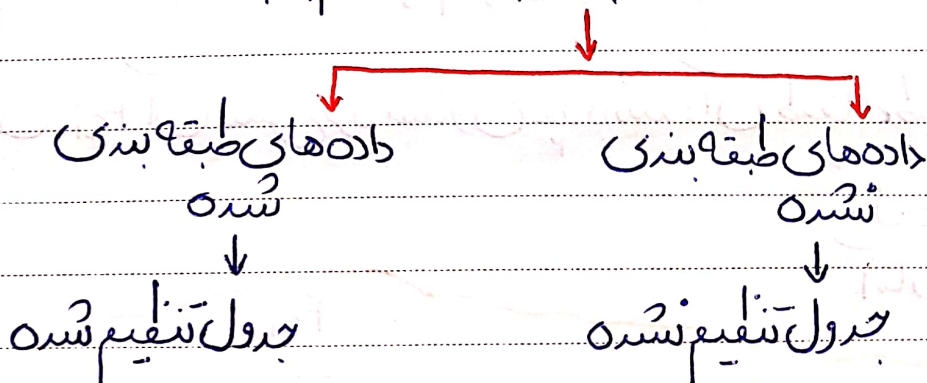 داده‌های طبقه بندی
نشده
جدول تنظیم نشده
داده‌های طبقه بندی
شده
جدول تنظیم شده